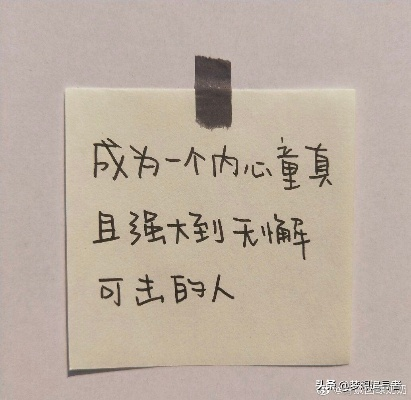 成为一个内心童真
且强大到无懈
可击的人